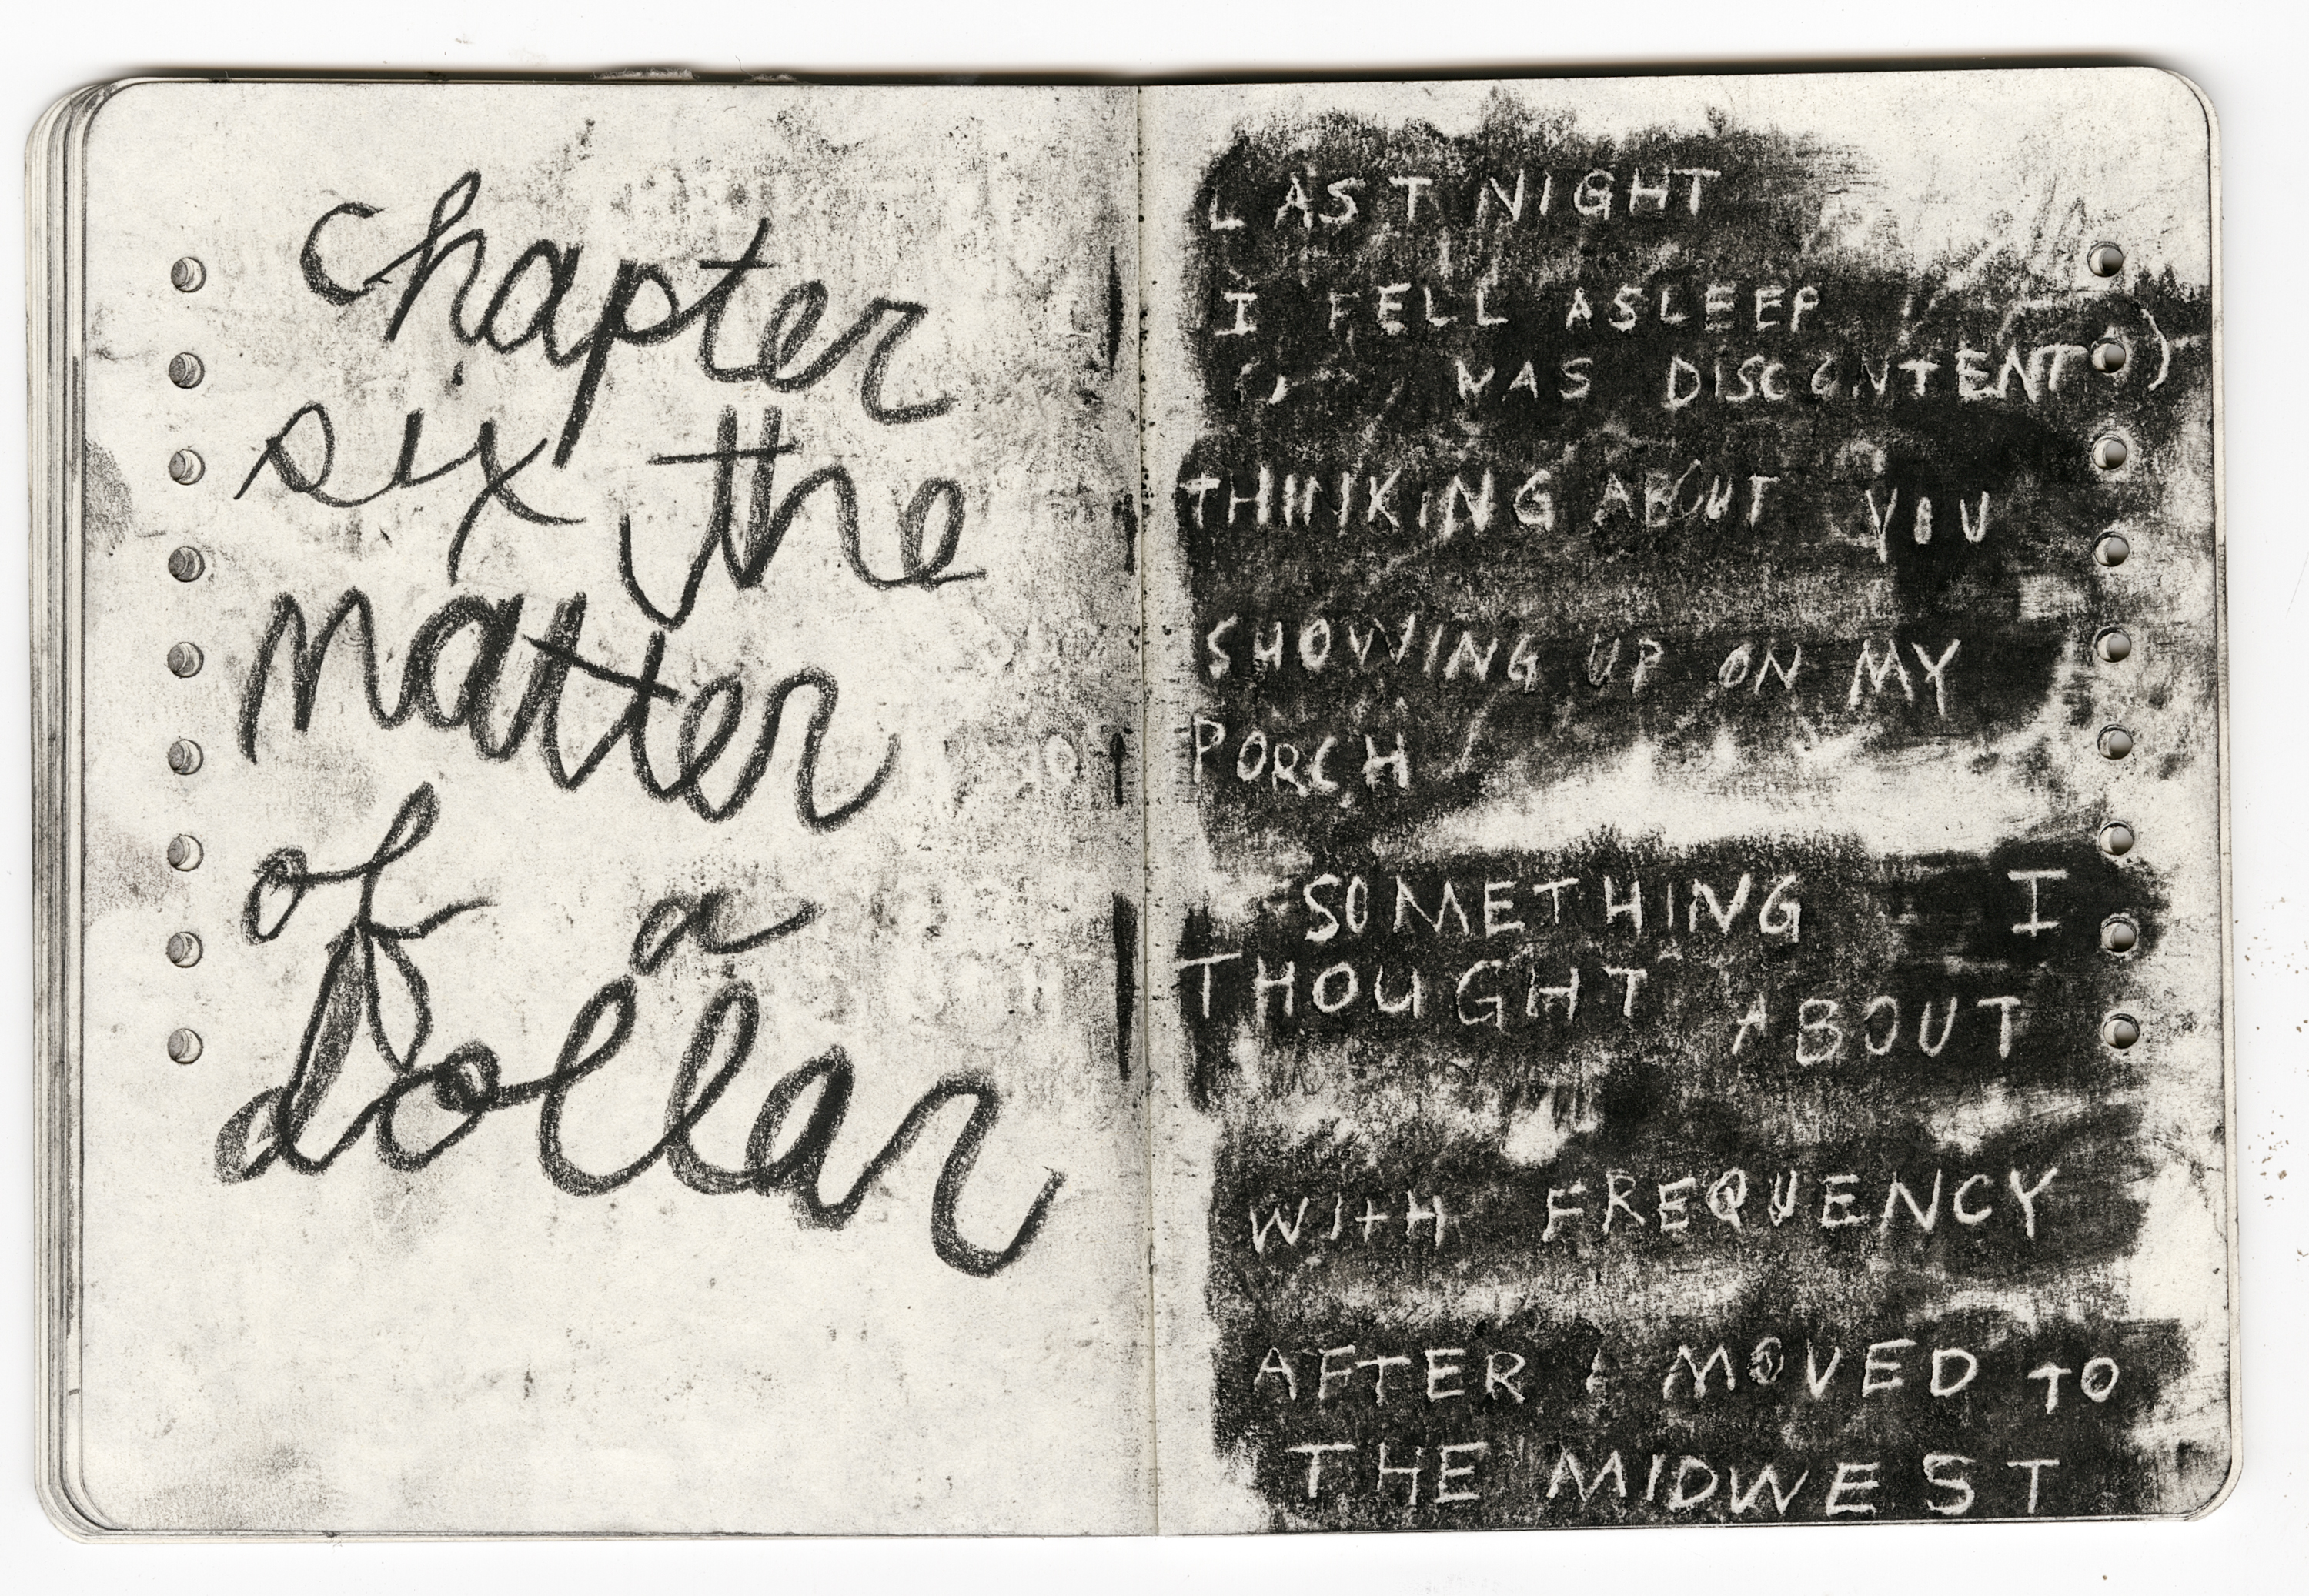 chapter
six the
matter
of a
dollar
LAST NIGHT
I FELL ASLEEP
WAS DISCONTENT )
THINKING ABOUT YOU
SHOWING UP ON MY
PORCH
SOMETHING I
THOUGHT ABOUT
WITH FREQUENCY
AFTER I MOVED TO
THE MIDWEST